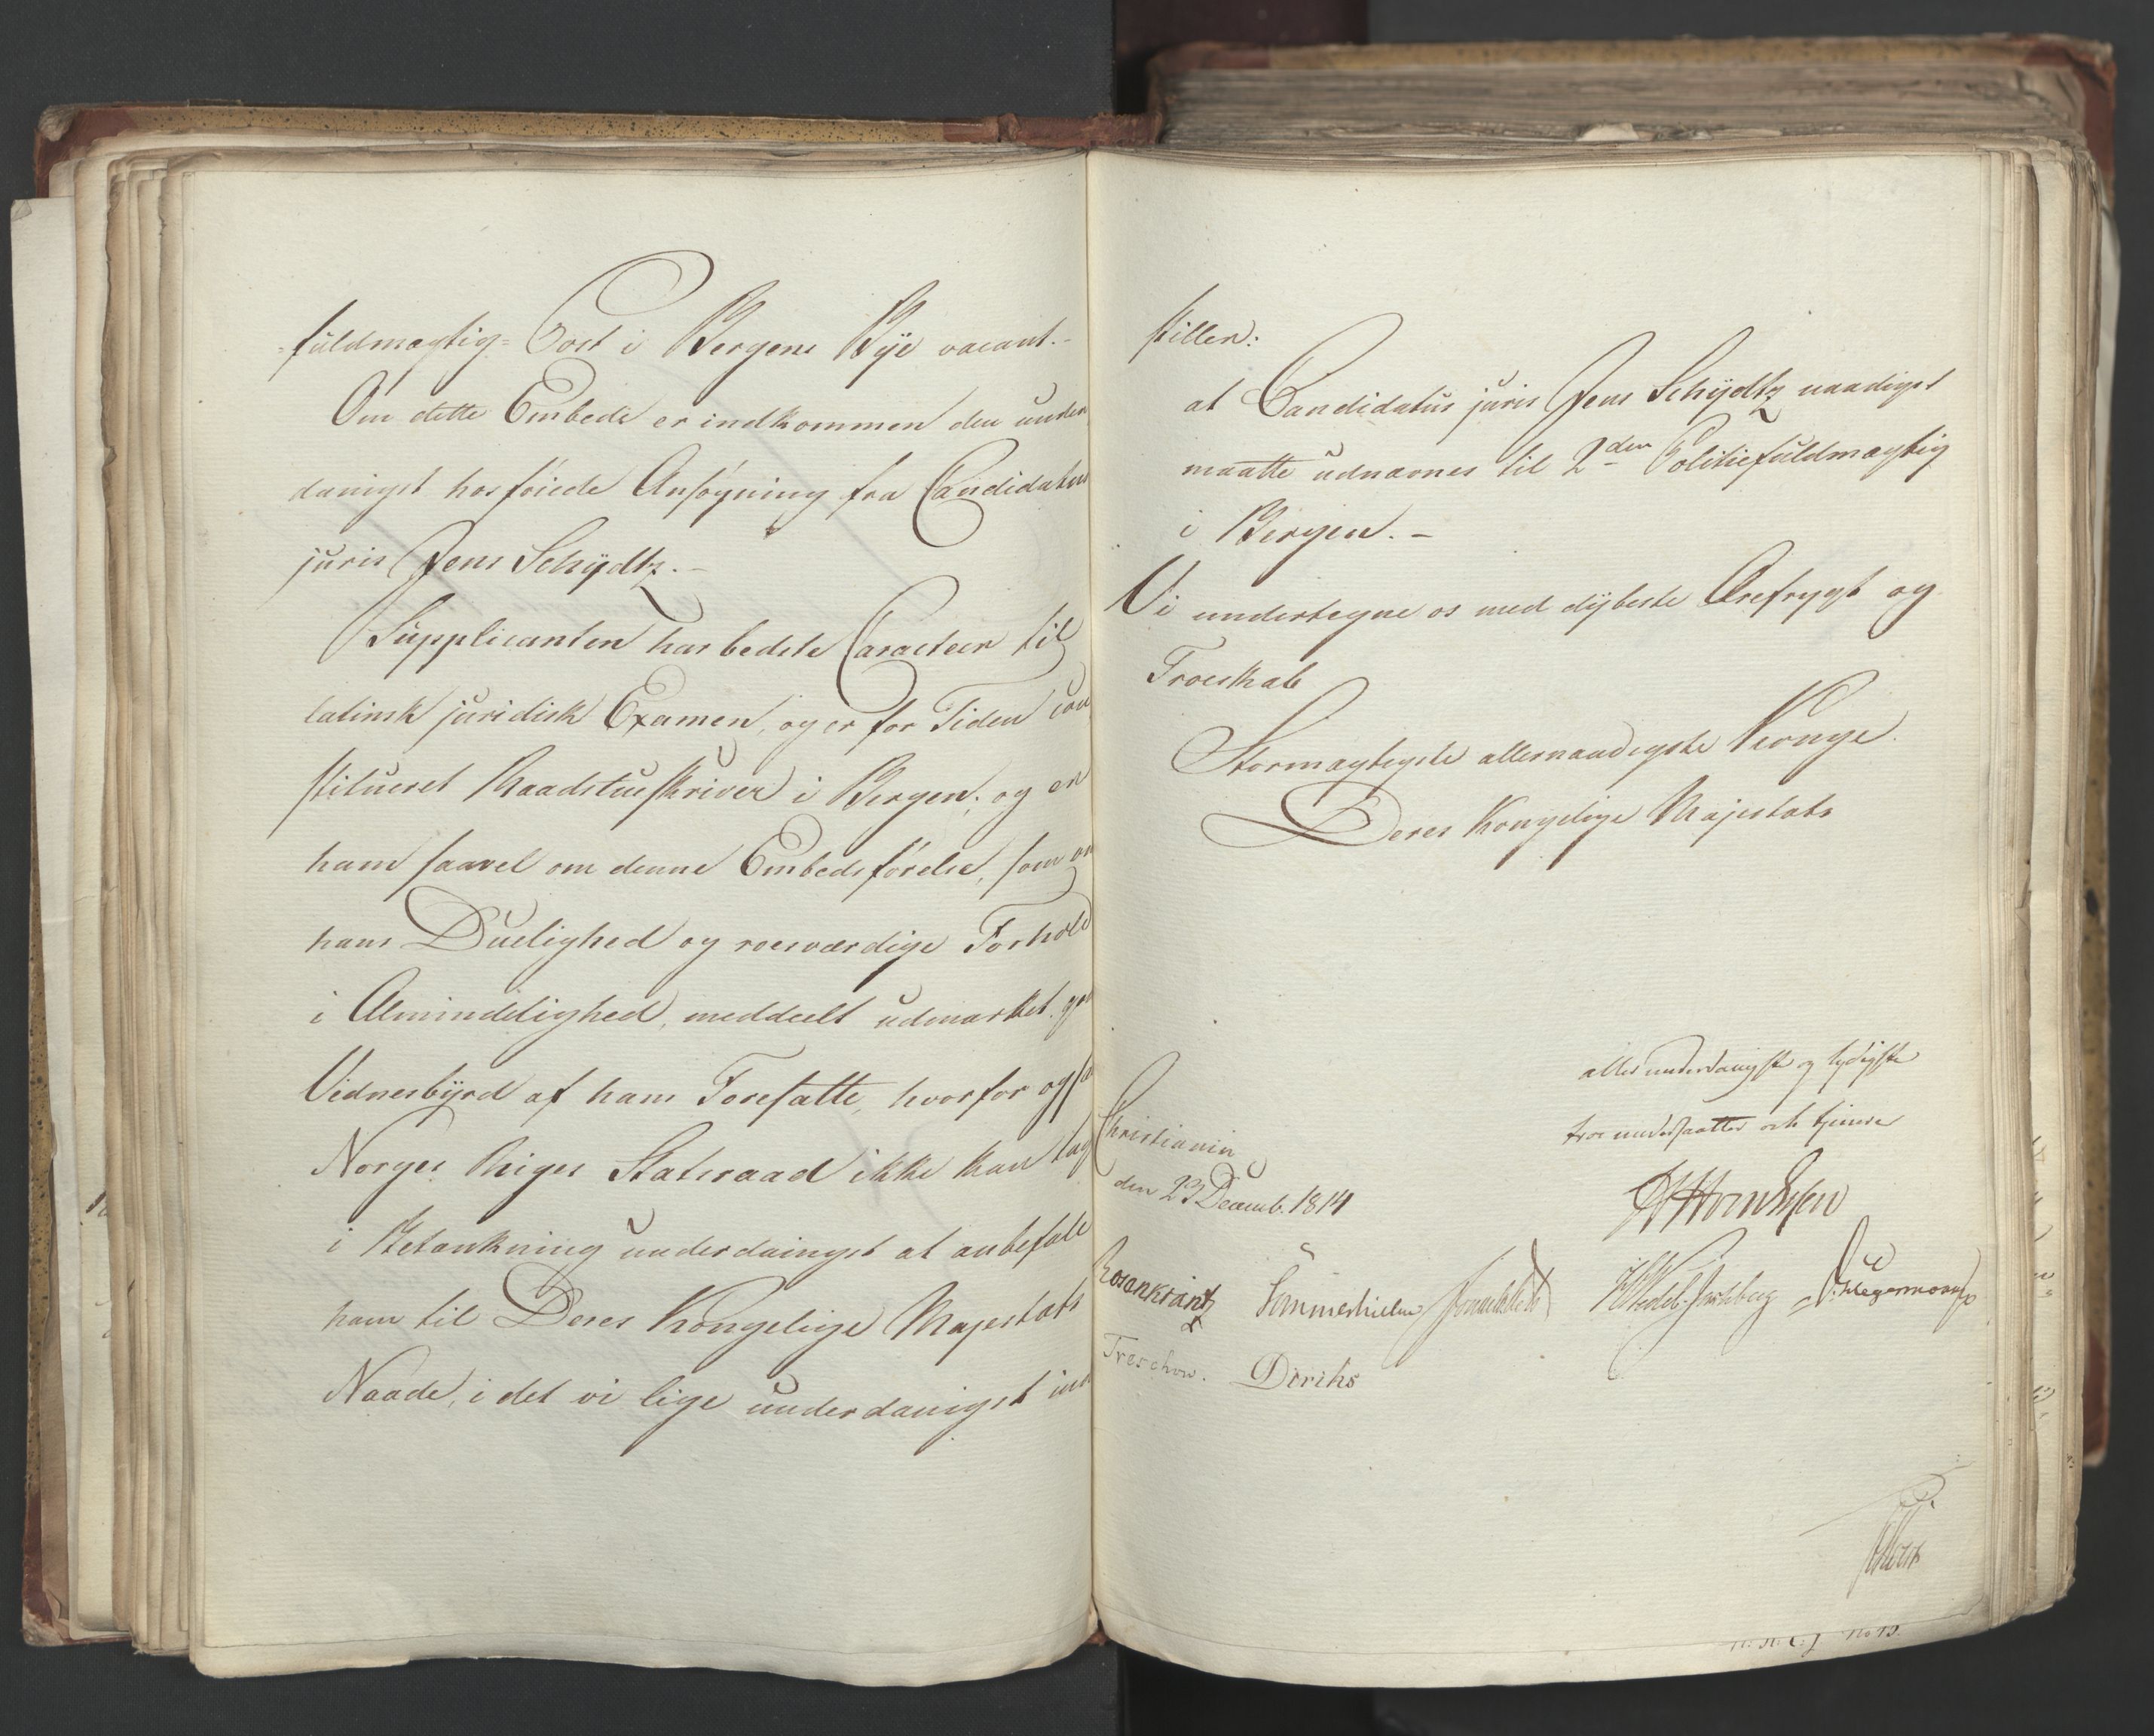 =fuldmagtig-Post i Bergens Bÿe vacant.-
Om dette Embede er indkommen den under
danigst hosføiede Ansøgning fra Candidatus
juris Jens Schÿdtz.-
Supplicanten har bedste Caracteer til
latinsk juridisk Examen, og er for Tiden con
stitueret Raadstueskriver i Bergen; og er
ham saavel om denne Embedsførelse, som om
hans Duelighed og roesværdige Forhold
i Almindelighed, meddeelt udmærket godt
Vidnesbÿrd af hans Foresatte, hvorfor ogsaa
Norges Riges Statsraad ikke kan tage
i Betænkning underdanigst at anbefale
ham til Deres Kongelige Majestæts
Naade, i det vi lige underdanigst ind
stiller:
at Candidatus juris Jens Schÿdtz naadigst
maatte udnævnes til 2den Politiefuldmægtig
i Bergen.-
Vi undertegne os med dÿbeste Ærefrygt og
Troeskab
Stormægtigste allernaadigste Konge.
Deres Kongelige Majestæts
allerunderdanigste og lydigste
troe undersaatter och tjenere
Christiania
den 23 Decemb. 1814
Rosenkrantz Sommerhielm HWedel-Jarlsberg Hegermann
Treschow. Diriks